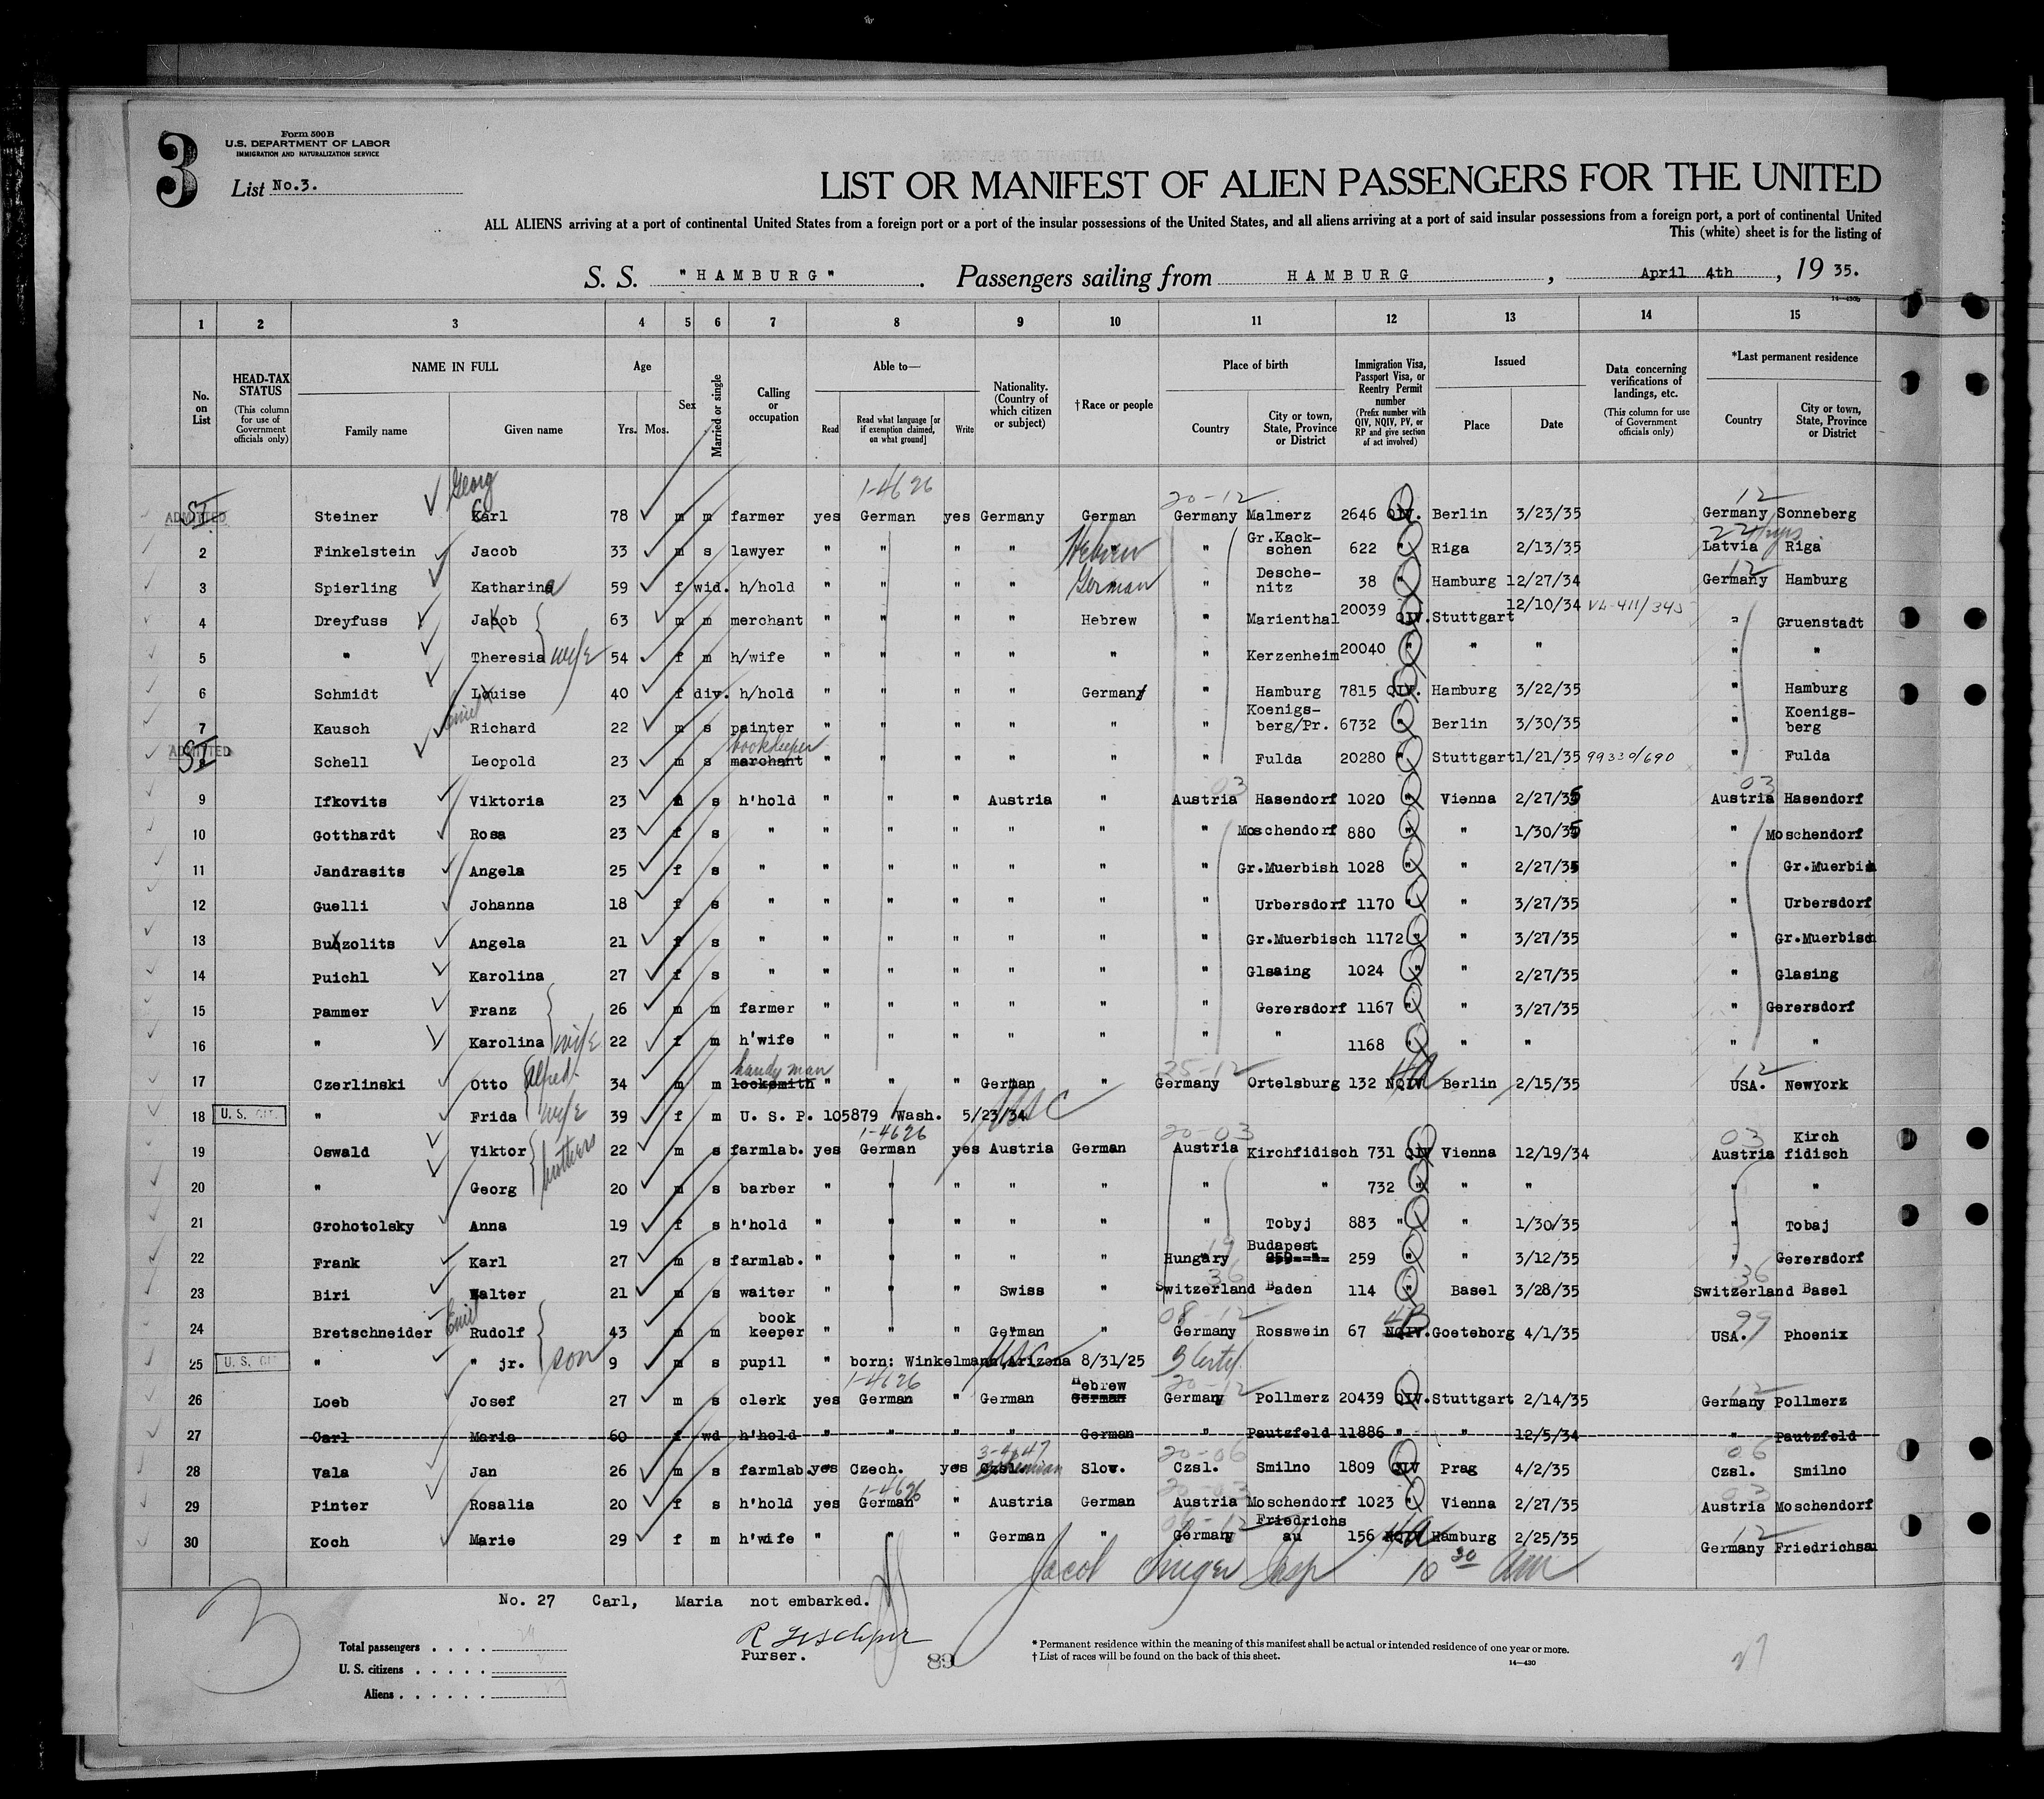 3
Form 500B
U.S. DEPARTMENT OF LABOR
IMMIGRATION AND NATURALIZATION SERVICE
List No.3.
LIST OR MANIFEST OF ALIEN PASSENGERS FOR THE UNITED
ALL ALIENS arriving at a port of continental United States from a foreign port or a port of the insular possessions of the United States, and all aliens arriving at a port of said insular possessions from a foreign port, a port of continental United
This (white) sheet is for the listing of
S. S. "HAMBURG". Passengers sailing from HAMBURG, April 4th, 1935.
14—430b
1 2 3 4 5 6 7 8 9 10 11 12 13 14 15
No. on List
HEAD-TAX STATUS (This column for use of Government officials only)
NAME IN FULL Family name Given name
Age Yrs. Mos.
Sex
Married or single
Calling or occupation
Able to— Read Read what language [or if exemption claimed, on what ground] Write
Nationality. (Country of which citizen or subject)
†Race or people
Place of birth Country City or town, State, Province or District
Immigration Visa, Passport Visa, or Reentry Permit number (Prefix number with QIV, NQIV, PV, or RP and give section of act involved)
Issued Place Date
Data concerning verifications of landings, etc. (This column for use of Government officials only)
*Last permanent residence Country City or town, State, Province or District
Georg 1-4626 20-12 12
ADMITTED SI Steiner Karl 78 m m farmer yes German yes Germany German Germany Malmerz 2646 QIV. Berlin 3/23/35 Germany Sonneberg
2 Finkelstein Jacob 33 m s lawyer " " " " Hebrew " Gr.Kack-schen 622 " Riga 2/13/35 Latvia Riga
3 Spierling Katharina 59 f wid. h/hold " " " " German " Desche-nitz 38 " Hamburg 12/27/34 12 Germany Hamburg
4 Dreyfuss Jakob 63 m m merchant " " " " Hebrew " Marienthal 20039 QIV. Stuttgart 12/10/34 " Gruenstadt
5 " Theresia wife 54 f m h/wife " " " " " " Kerzenheim 20040 " " " " "
6 Schmidt Louise 40 f div. h/hold " " " " German " Hamburg 7815 QIV. Hamburg 3/22/35 " Hamburg
7 Kausch Richard 22 m s painter " " " " " " Koenigs-berg/Pr. 6732 " Berlin 3/30/35 " Koenigs-berg
ADMITTED SI Schell Leopold 23 m s bookkeeper marchant " " " " " " Fulda 20280 " Stuttgart 1/21/35 99330/690 " Fulda
9 Ifkovits Viktoria 23 s h'hold " " " Austria " 03 Austria Hasendorf 1020 " Vienna 2/27/35 03 Austria Hasendorf
10 Gotthardt Rosa 23 f s " " " " " " " Moschendorf 880 " " 1/30/35 " Moschendorf
11 Jandrasits Angela 25 f s " " " " " " Gr.Muerbish 1028 " " 2/27/35 " Gr.Muerbis
12 Guelli Johanna 18 f s " " " " " " " Urbersdorf 1170 " " 3/27/35 " Urbersdorf
13 Buzolits Angela 21 f s " " " " " " " Gr.Muerbisch 1172 " " 3/27/35 " Gr.Muerbisch
14 Puichl Karolina 27 f s " " " " " " " Glsaing 1024 " " 2/27/35 " Glasing
15 Pammer Franz 26 m m farmer " " " " " " Gerersdorf 1167 " " 3/27/35 " Gerersdorf
16 " Karolina wife 22 f m h'wife " " " " " " " 1168 " " " " "
17 Czerlinski Otto Alfred 34 m m handy man locksmith " " " German " 25-12 Germany Ortelsburg 132 NQIV 4a Berlin 2/15/35 12 USA. NewYork
18 U. S. CIT. " Frida wife 39 f m U. S. P. 105879 Wash. 5/23/34 USC
19 Oswald Viktor 22 m s farmlab. yes 1-4626 German yes Austria German 20-03 Austria Kirchfidisch 731 QIV Vienna 12/19/34 03 Austria Kirch fidisch
20 " Georg brothers 20 m s barber " " " " " " " 732 " " " " "
21 Grohotolsky Anna 19 f s h'hold " " " " " " Tobyj 883 " " 1/30/35 " Tobaj
22 Frank Karl 27 m s farmlab. " " " " " 19 Hungary Budapest 259 " " 3/12/35 " Gerersdorf
23 Biri Walter 21 m s waiter " " " Swiss " 36 Switzerland Baden 114 " Basel 3/28/35 36 Switzerland Basel
24 Bretschneider Emil Rudolf 43 m m book keeper " " " German " 08-12 Germany Rosswein 67 NQIV. 4B Goeteborg 4/1/35 99 USA. Phoenix
25 U. S. CIT " " jr. son 9 m s pupil " born: Winkelmann, Arizona 8/31/25 USC B Certf.
26 Loeb Josef 27 m s clerk yes 1-4626 German " German Hebrew German 20-12 Germany Pollmerz 20439 QIV. Stuttgart 2/14/35 12 Germany Pollmerz
27 Carl Maria 60 f wd h'hold " " " " German " Pautzfeld 11886 " " 12/5/34 " Pautzfeld
28 Vala Jan 26 m s farmlab. yes Czech. yes Czsl. Bohemian Slow. 20-06 Czsl. Smilno 1809 QIV Prag 4/2/35 06 Czsl. Smilno
29 Pinter Rosalia 20 f s h'hold yes 1-4626 German " Austria German 20-03 Austria Moschendorf 1023 " Vienna 2/27/35 03 Austria Moschendorf
30 Koch Marie 29 f m h'wife " " " German " Germany Friedrichs au 156 NQIV 4a Hamburg 2/25/35 12 Germany Friedrichsa
Jacob Insp 10 30 am
No. 27 Carl, Maria not embarked.
3
Purser.
89
Total passengers . . . .
U. S. citizens . . . . .
Aliens . . . . . .
* Permanent residence within the meaning of this manifest shall be actual or intended residence of one year or more.
† List of races will be found on the back of this sheet.
14—430